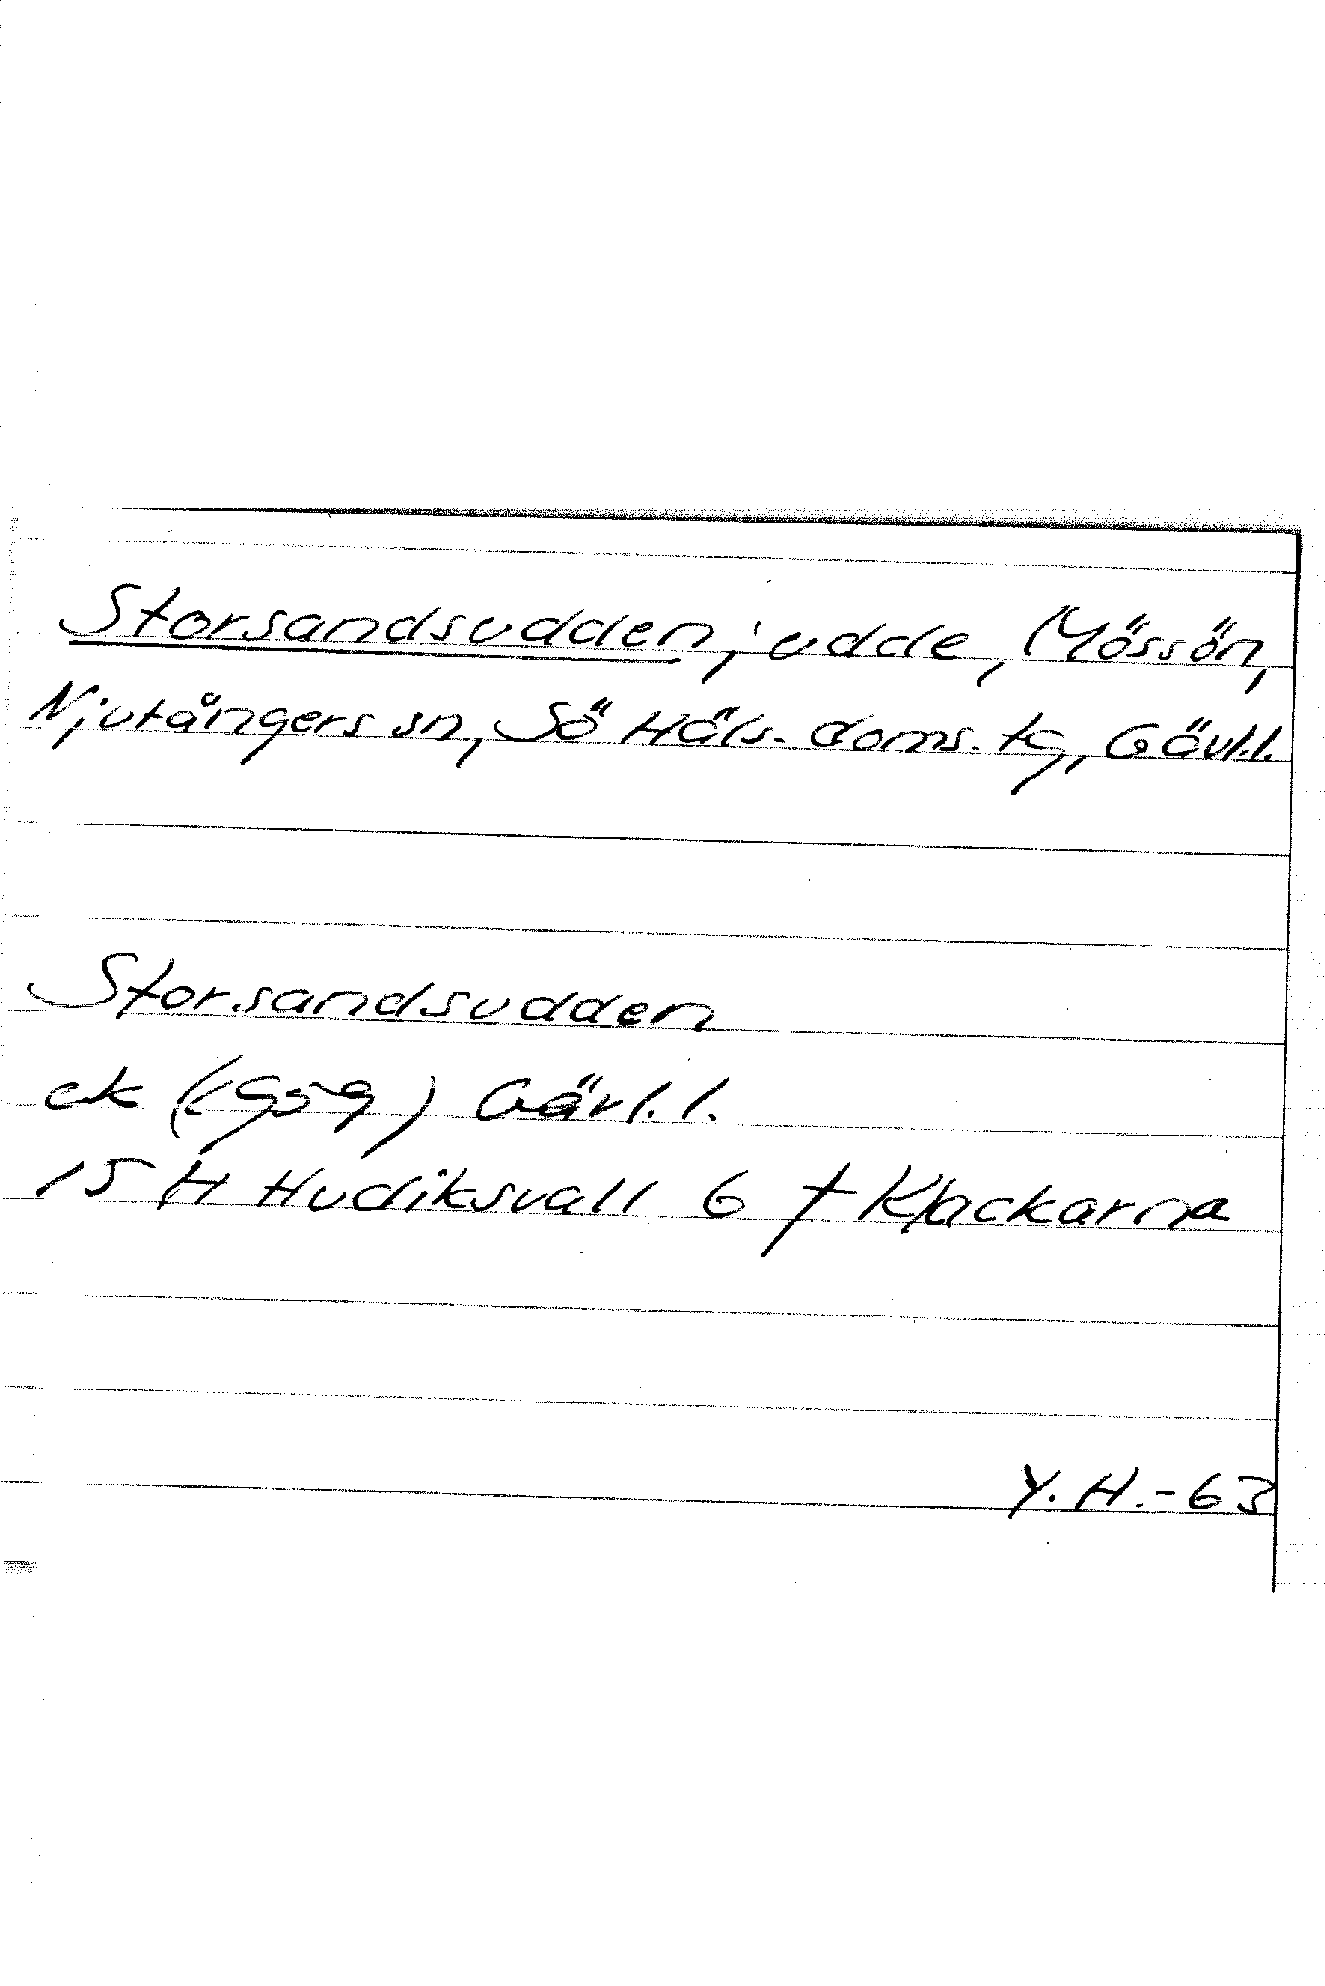 Storsandsudden, udde, Mössön,
Njutångers sn, Sö Häls. doms. tg, Gävl.l.
Storsandsudden
ek (1959) Gävl.l.
15 H Hudiksvall 6 f Klackarna
Y.H.-63